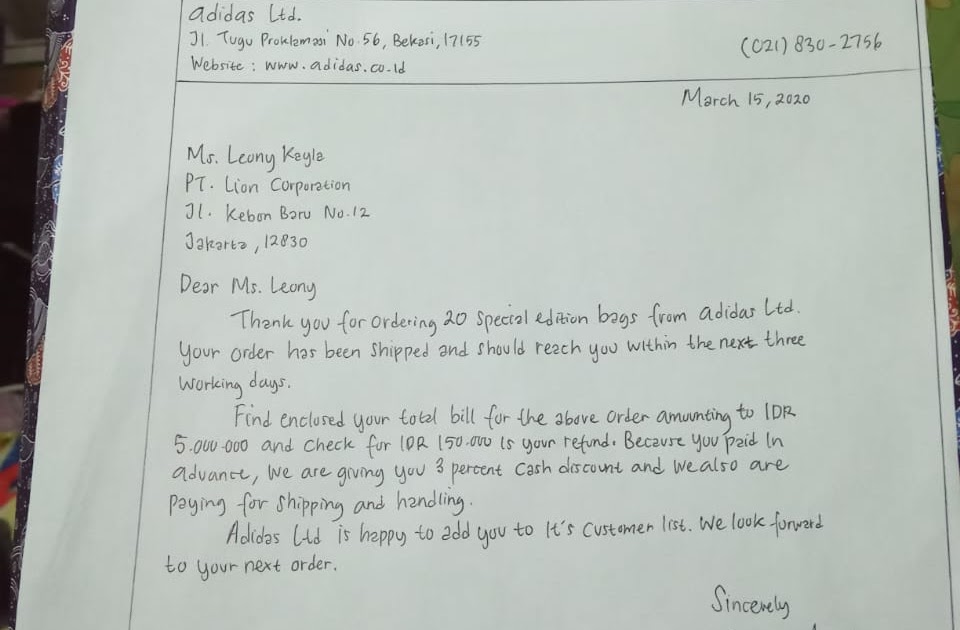 adidas Ltd.
Jl. Tugu Proklamasi No.56, Bekasi, 17155
(021) 830-2756
Website : www.adidas.co.id
March 15, 2020
Ms. Leony Kayla
PT. Lion Corporation
Jl. Kebon Baru No.12
Jakarta, 12830
Dear Ms. Leony
Thank you for ordering 20 special edition bags from adidas Ltd.
Your order has been shipped and should reach you within the next three
working days.
Find enclosed your total bill for the above order amuunting to IDR
5.000.000 and check for IDR 150.000 is your refund. Because you paid in
advance, we are giving you 3 percent cash discount and we also are
paying for shipping and handling.
Adidas Ltd is happy to add you to It's customer list. We look forward
to your next order.
Sincerely